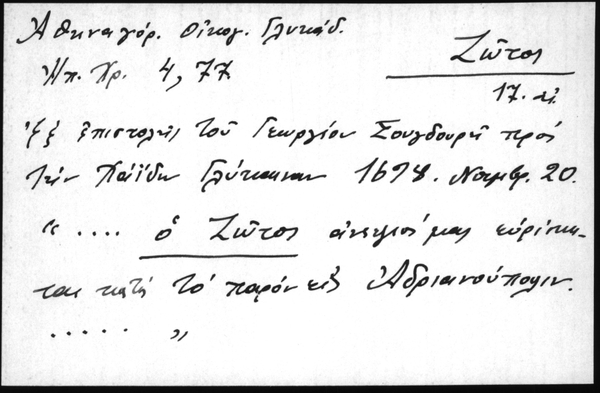 Ἀθηναγόρ. Οἰκογ. Γλυκάδ.
Ἠπ. Χρ. 4, 77
Ζῶτος
17. αἰ.
Ἐξ ἐπιστολῆς τοῦ Γεωργίου Σουγδουρῆ πρὸς
τὸν Γλύκωναν 1698. Νοεμβρ. 20.
« .... ὁ Ζῶτος ἀνεψιός μας εὑρίσκε-
ται κατὰ τὸ παρὸν εἰς Ἀδριανούπολιν.
..... »